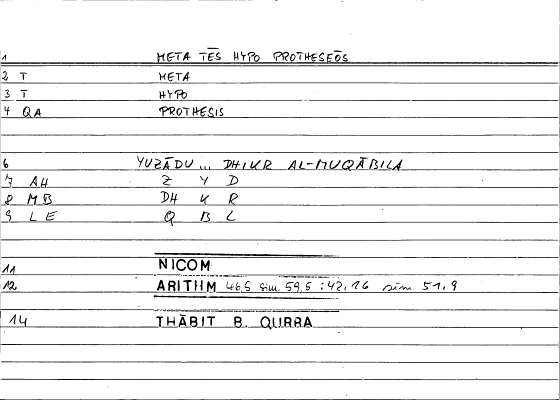 1 META TĒS HYPO PROTHESEŌS
2 T META
3 T HYPO
4 QA PROTHESIS
6 YUZĀDU... DHIKR AL-MUQĀBILA
7 AH Z Y D
8 MB DH K R
9 LE Q B L
11 NICOM
12 ARITHM 46,5 sim. 59,5 : 42,16 sim 51,9
14 THĀBIT B. QURRA